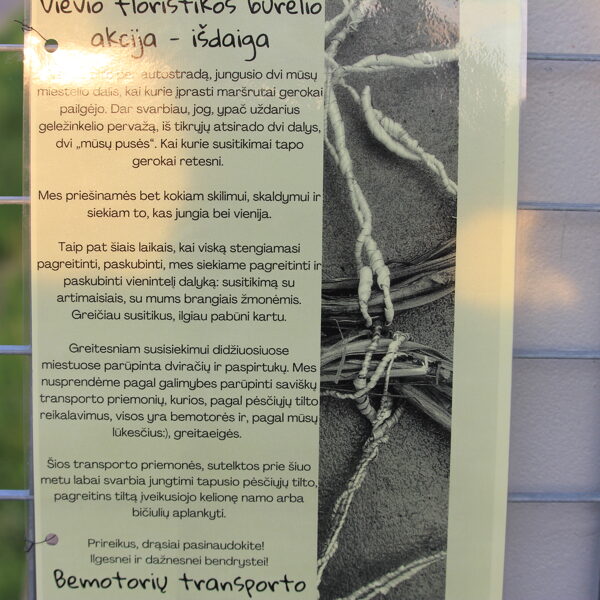 Vievio floristikos būrelio
akcija - išdaiga
autostradą, jungusio dvi mūsų
miestelio dalis, kai kurie įprasti maršrutai gerokai
pailgėjo. Dar svarbiau, jog, ypač uždarius
geležinkelio pervažą, iš tikrųjų atsirado dvi dalys,
dvi „mūsų pusės“. Kai kurie susitikimai tapo
gerokai retesni.
Mes priešinamės bet kokiam skilimui, skaldymui ir
siekiam to, kas jungia bei vienija.
Taip pat šiais laikais, kai viską stengiamasi
pagreitinti, paskubinti, mes siekiame pagreitinti ir
paskubinti vienintelį dalyką: susitikimą su
artimaisiais, su mums brangiais žmonėmis.
Greičiau susitikus, ilgiau pabūni kartu.
Greitesniam susisiekimui didžiuosiuose
miestuose parūpinta dviračių ir paspirtukų. Mes
nusprendėme pagal galimybes parūpinti savišky
transporto priemonių, kurios, pagal pėsčiųjų tilto
reikalavimus, visos yra bemotorės ir, pagal mūsų
lūkesčius:), greitaeigės.
Šios transporto priemonės, sutelktos prie šiuo
metu labai svarbia jungtimi tapusio pėsčiųjų tilto,
pagreitins tiltą įveikusiojo kelionę namo arba
bičiulių aplankyti.
Prireikus, drąsiai pasinaudokite!
Ilgesnei ir dažnesnei bendrystei!
Bemotorių transporto